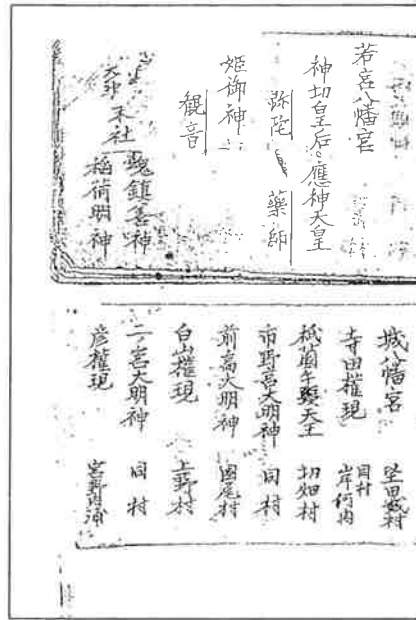 若宮八幡宮
神功皇后 應神天皇
弥陀 藥師
姫御神
観音
末社
魂鎮善神
稲荷明神
城八幡宮 堅田城村
寺田権現 同村岸河内
祇園牛頭天王 切畑村
市野宮大明神 同村
前高大明神 國尾村
白山権現 上野村
二ノ宮大明神 同村
彦権現 宮野内浦